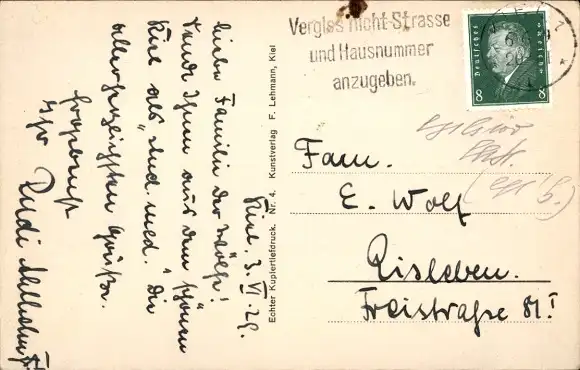 Vergiss nicht Strasse
und Hausnummer
anzugeben.
Deutsches Reich
8 8
Kiel. 3. VI. 29.
Liebe Familie der Wölfe!
sendet Ihnen aus dem schönen
Kiel als „stud. med." die
allerherzlichsten Grüße.
Ihr Rudi
Echter Kupfertiefdruck. Nr. 4. Kunstverlag F. Lehmann, Kiel
Fam.
E. Wolf
Eisleben.
Freistraße 81 I